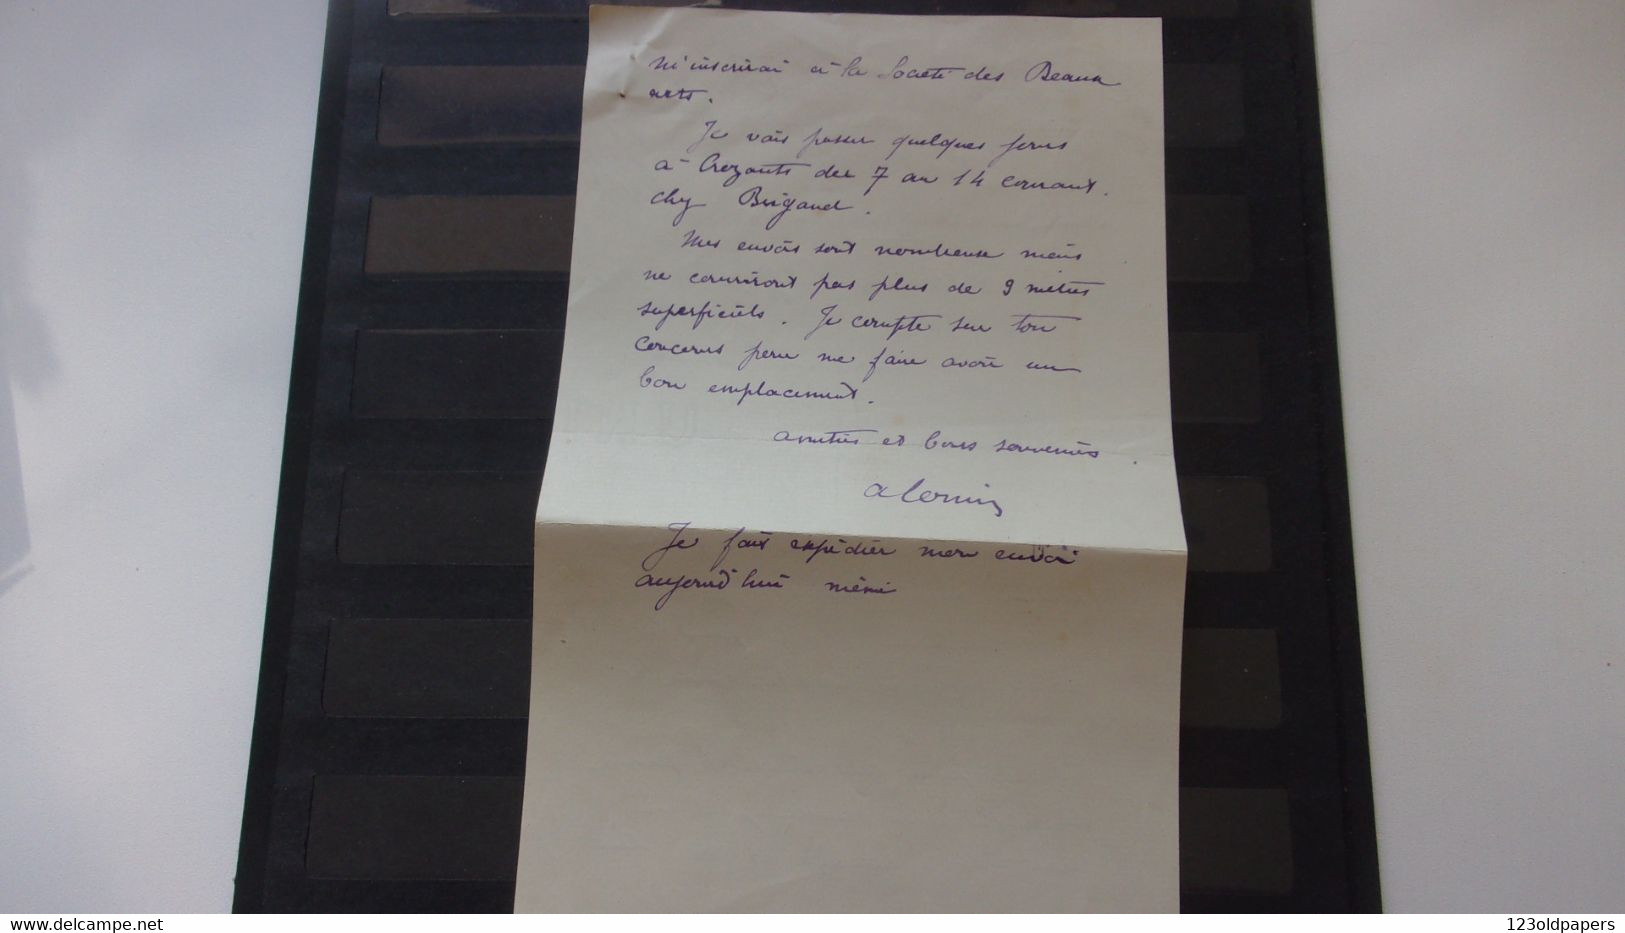 m'inscrirai à la Société des Beaux
arts.
Je vais passer quelques jours
à Crozants du 7 au 14 courant.
chez Brigaud.
Mes envois sont nombreux mais
ne couvriront pas plus de 9 mètres
superficiels. Je compte sur ton
concours pour me faire avoir un
bon emplacement.
amitiés et bons souvenirs.
Je fais expédier mon envoi
aujourd'hui même
www.delcampe.net
123oldpapers